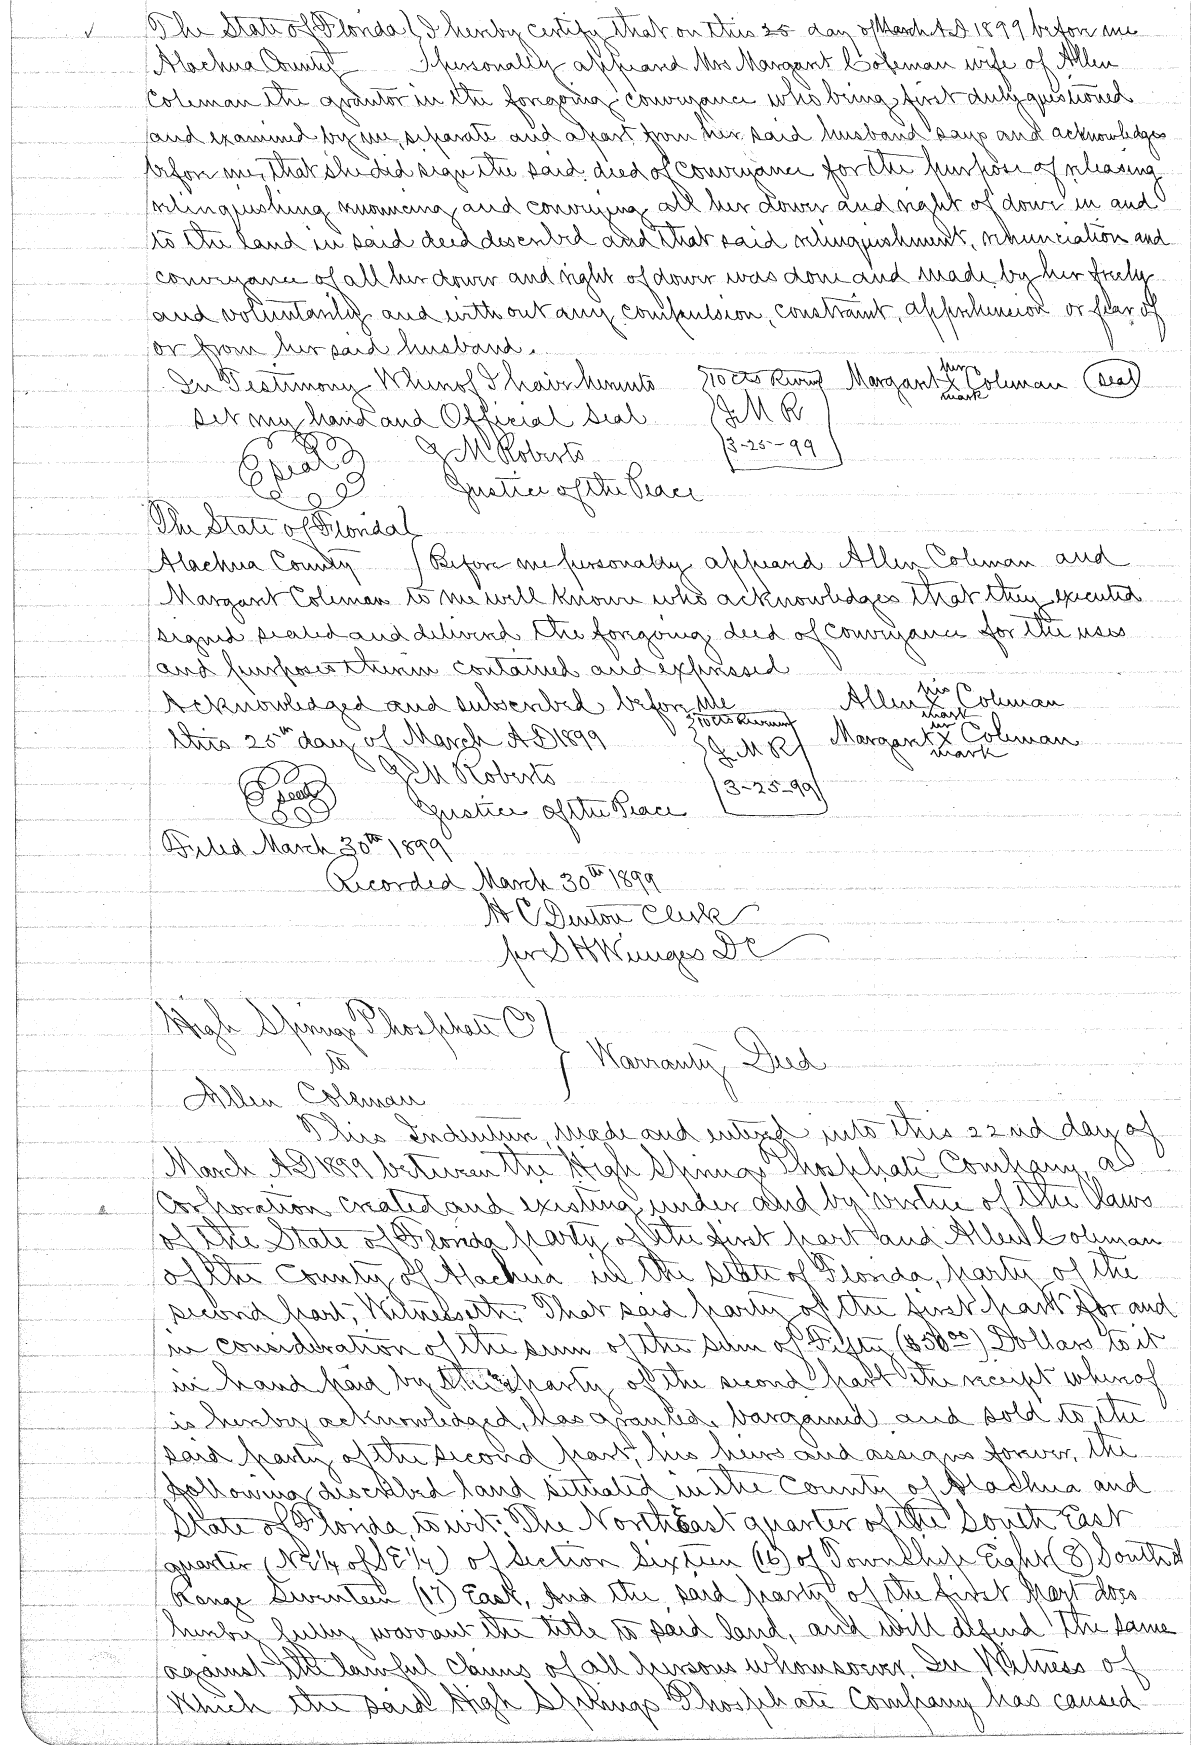 The State of Florida } I hereby certify that on this 25 day of March A.D. 1899 before me
Alachua County } personally appeared Mrs Margaret Coleman wife of Allen
Coleman the grantor in the foregoing conveyance who being first duly questioned
and examined by me, separate and apart from her said husband says and acknowledges
before me, that she did sign the said deed of conveyance for the purpose of releasing
relinquishing renouncing and conveying all her dower and right of dower in and
to the land in said deed described and that said relinquishment, renunciation and
conveyance of all her dower and right of dower was done and made by her freely
and voluntarily and without any compulsion, constraint, apprehension or fear of
or from her said husband.
In Testimony Whereof I have hereunto 10 cts Revenue Margaret her X mark Coleman (seal)
set my hand and Official Seal J M R
(seal) J M Roberts 3-25-99
Justice of the Peace
The State of Florida }
Alachua County } Before me personally appeared Allen Coleman and
Margaret Coleman to me well known who acknowledges that they executed
signed sealed and delivered the foregoing deed of conveyance for the uses
and purposes therein contained and expressed
Acknowledged and subscribed before me Allen his X mark Coleman
this 25th day of March A D 1899 10 cts Revenue Margaret her X mark Coleman
J M Roberts J M R
(Seal) Justice of the Peace 3-25-99
Filed March 30th 1899
Recorded March 30th 1899
H C Denton Clerk
per S H Wienges D C
High Springs Phosphate Co }
to } Warranty Deed
Allen Coleman
This Indenture, Made and entered into this 22nd day of
March A D 1899 between the High Springs Phosphate Company, a
Corporation created and existing under and by virtue of the Laws
of the State of Florida party of the first part and Allen Coleman
of the County of Alachua in the State of Florida, party of the
second part, Witnesseth: That said party of the first part for and
in consideration of the sum of the sum of Fifty ($50 00) Dollars to it
in hand paid by the party of the second part the receipt whereof
is hereby acknowledged, has granted, bargained and sold to the
said party of the second part, his heirs and assigns forever, the
following described land situated in the County of Alachua and
State of Florida, to wit: The North East quarter of the South East
quarter (NE 1/4 of SE 1/4) of Section Sixteen (16) of Township Eight (8) South of
Range Seventeen (17) East, And the said party of the first part does
hereby fully warrant the title to said land, and will defend the same
against the lawful claims of all persons whomsoever. In Witness of
Which the said High Springs Phosphate Company has caused